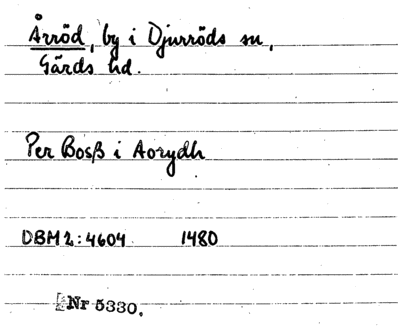 Årröd, by i Djurröds sn,
Gärds hd.
Per Bosß i Aorydh
DBM 2:4604 1480
Nr 5330.